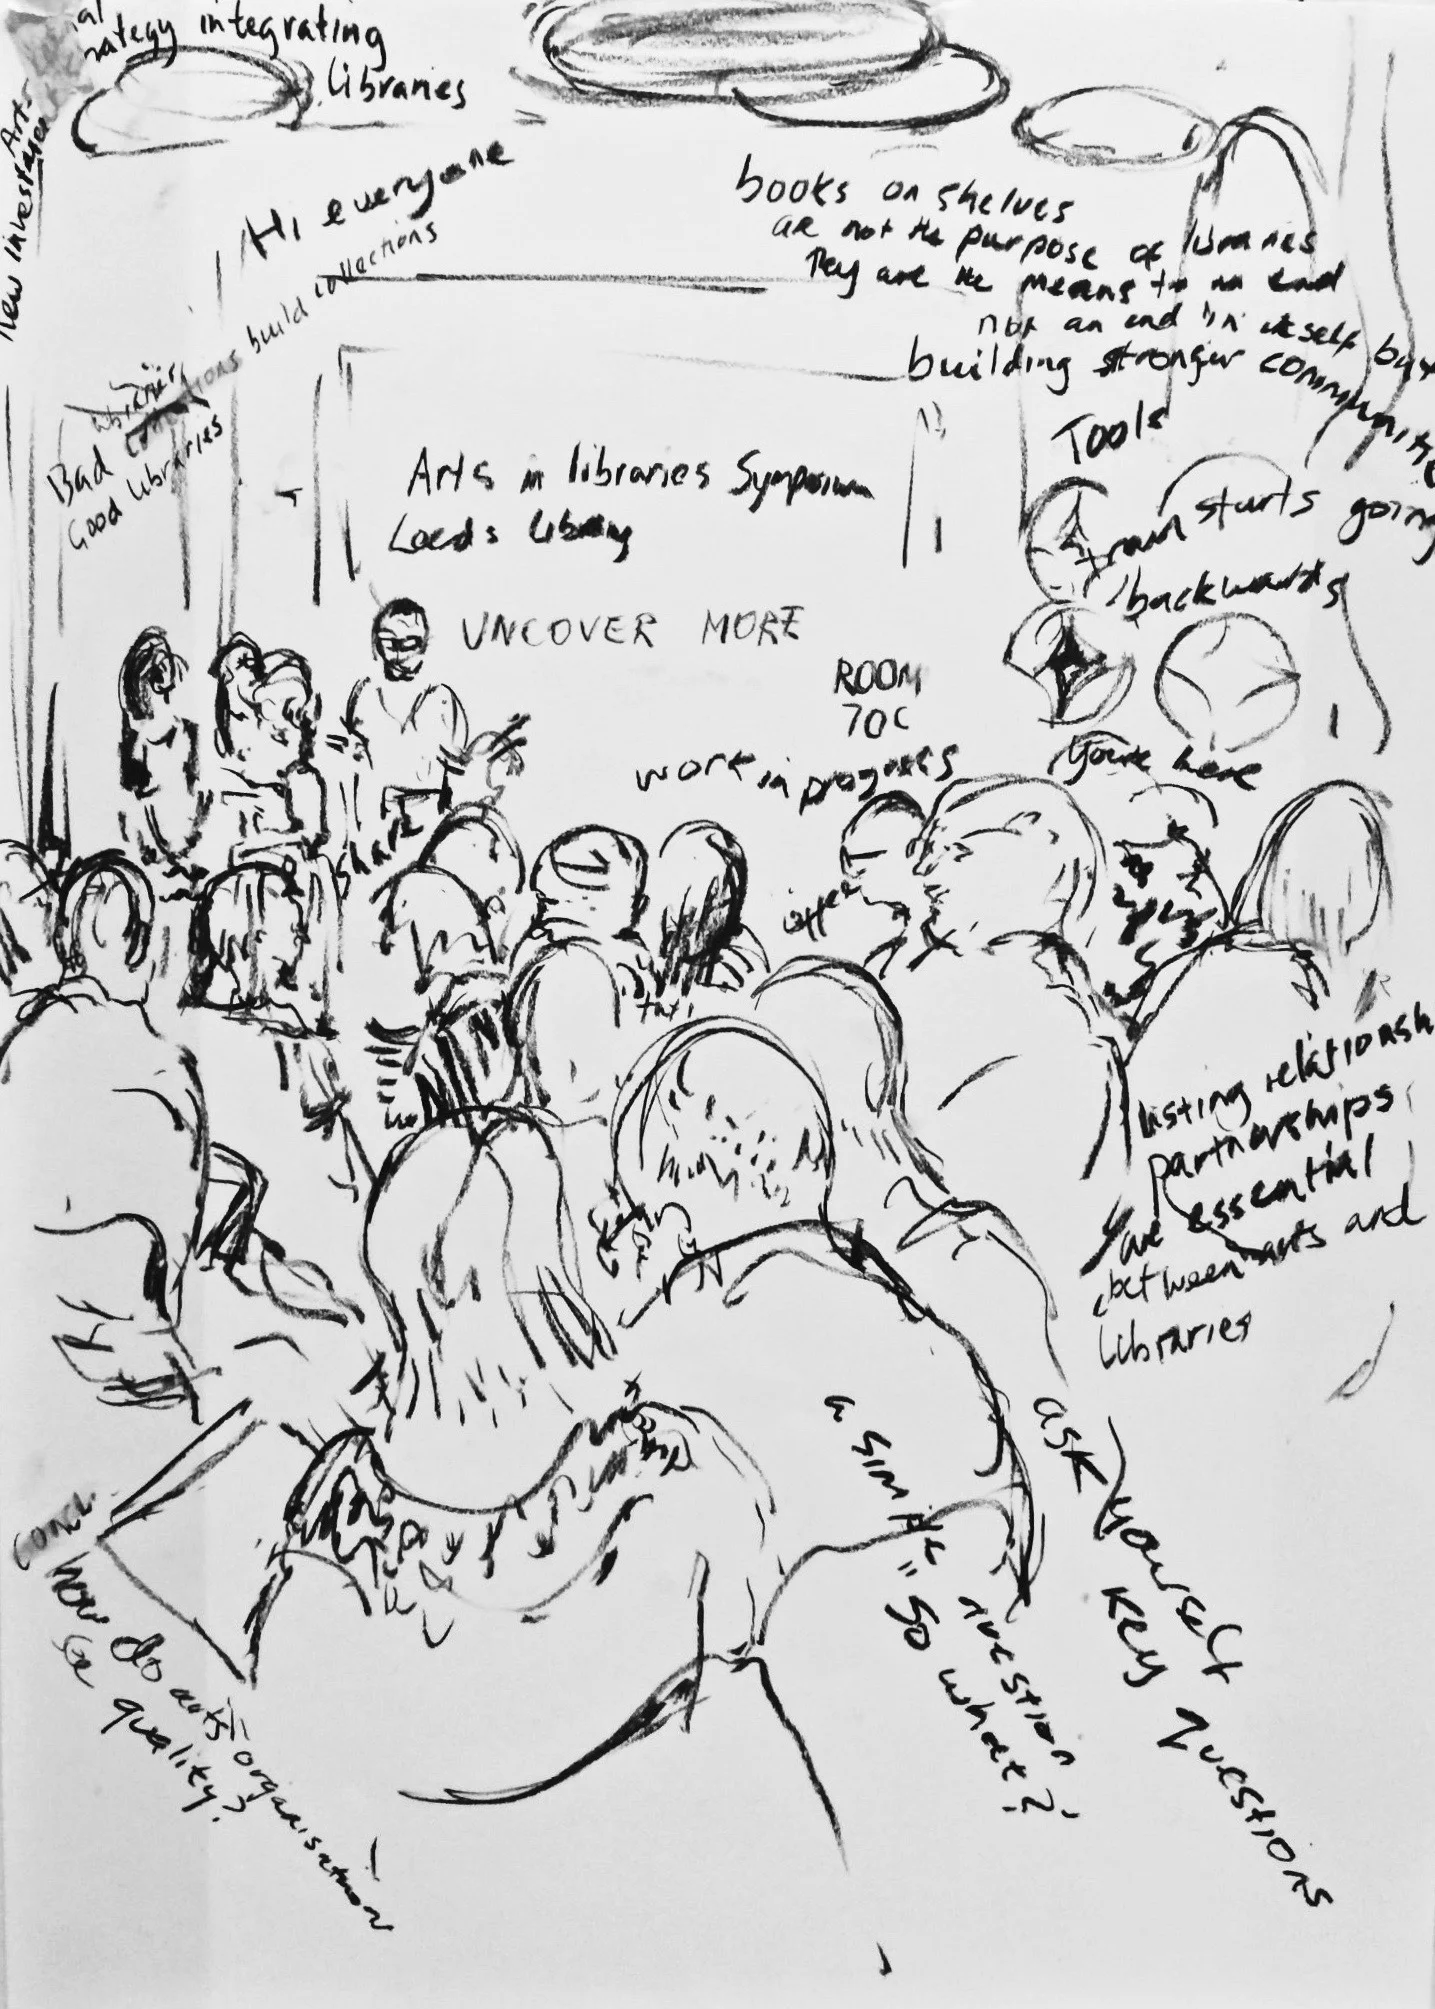 integrating
libraries
New
Hi everyone
build collections
Bad libraries
Good libraries
books on shelves
are not the purpose of libraries
They are the means to an end
not an end in itself but
building stronger communities
Tools
train starts going
backwards
Arts in libraries Symposium
Leeds Library
UNCOVER MORE
ROOM
700
work in progress
You're here
share
taxi
lasting relationsh
partnerships
are essential
between arts and
libraries
ask yourself
key questions
a simple question
"So what?"
how do arts organisation
be quality?